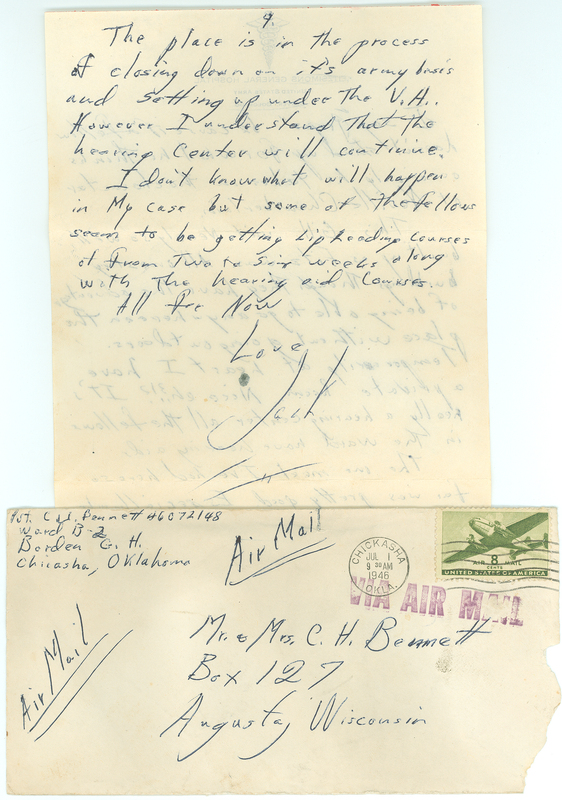 9.
The place is in the process
of closing down on it's army basis
and setting up under the V.A..
However I understand that the
hearing Center will continue.
I don't know what will happen
in my case but some of the fellows
seem to be getting Lip Reading courses
of from Two to Six weeks along
with The hearing aid Courses.
All For Now
Love
Jack
Pvt. C.J. Bennett 46072148
Ward B-2
Borden G. H.
Chicasha, Oklahoma
Air Mail
CHICKASHA
JUL 1
9 30 AM
1946
OKLA.
AIR 8 MAIL
CENTS
UNITED STATES OF AMERICA
VIA AIR MAIL
Air Mail
Mr. & Mrs. C. H. Bennett
Box 127
Augusta, Wisconsin